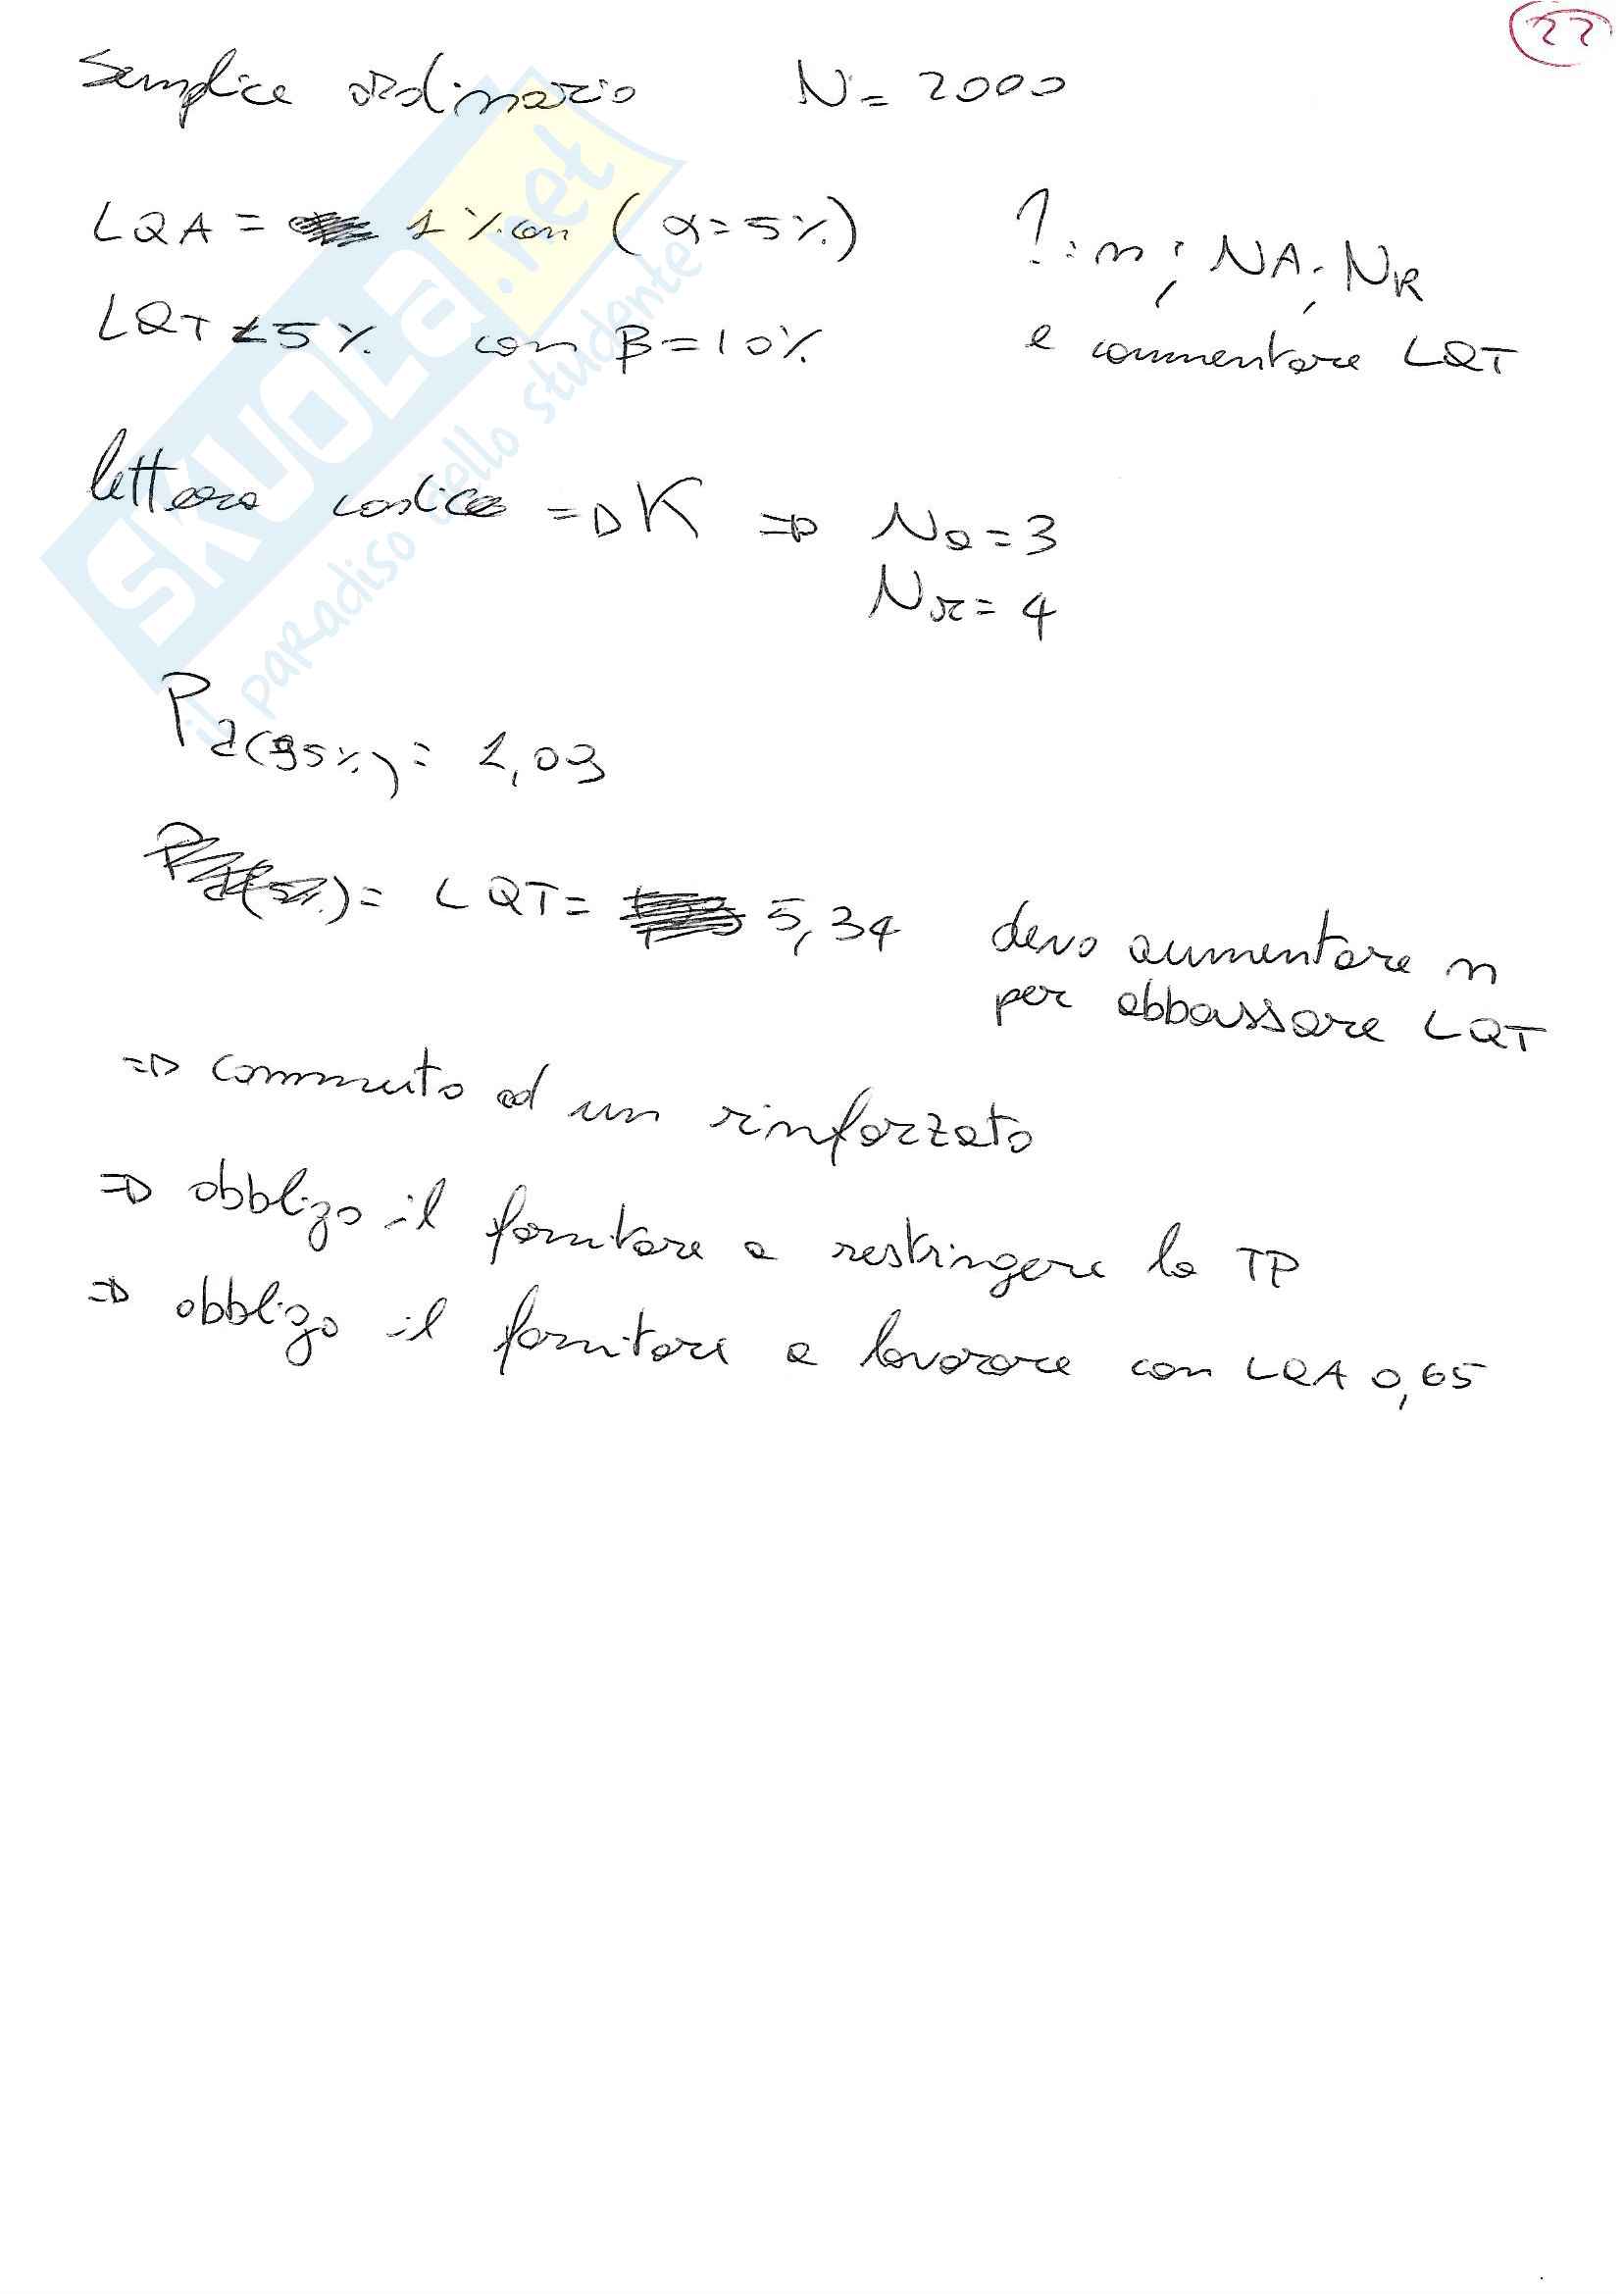 22
Semplice ordinario N = 2000
LQA = 1 % con (α = 5%) ? : n ; NA ; NR
LQT ≤ 5 % con β = 10% e commentare LQT
lettera codice => K => Na = 3
Nr = 4
Pa(95%) = 1,03
= LQT = 5,34 devo aumentare n
per abbassare LQT
=> commuto ad un rinforzato
=> obbligo il fornitore a restringere la TP
=> obbligo il fornitore a lavorare con LQA 0,65
SKUOLa.net
il paradiso dello studente